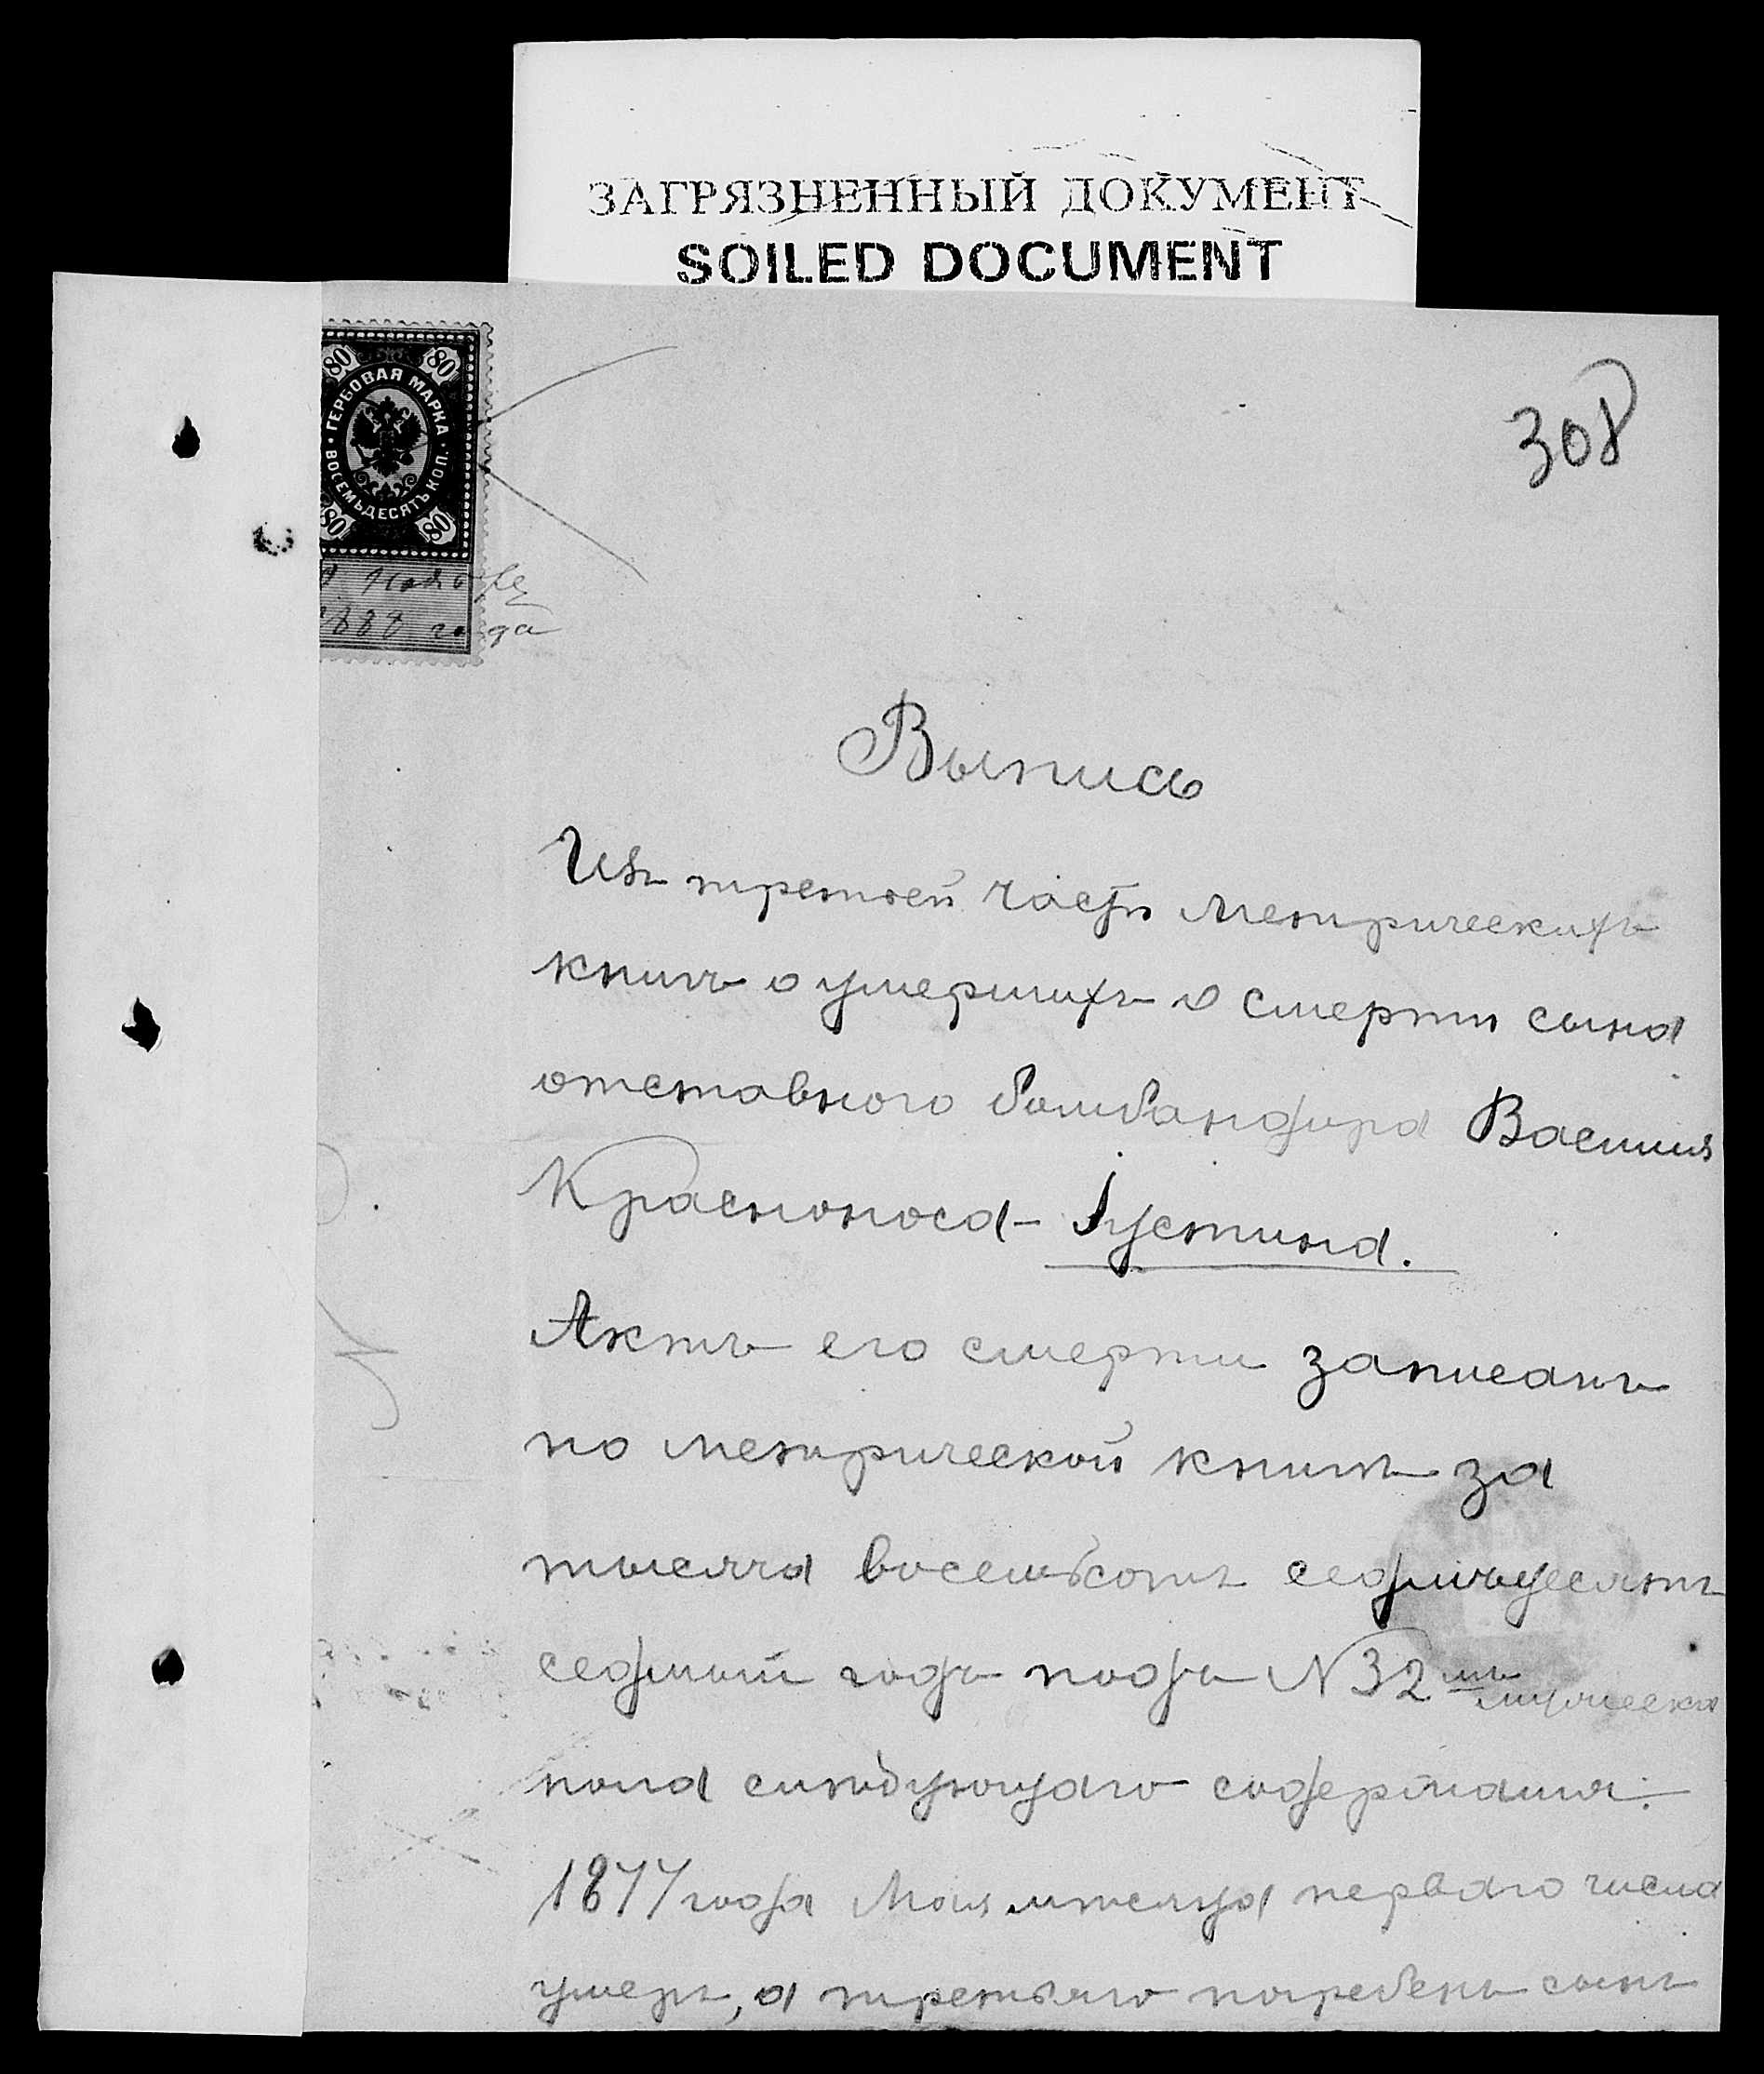 ЗАГРЯЗНЕННЫЙ ДОКУМЕНТ
SOILED DOCUMENT
80 80
ГЕРБОВАЯ МАРКА
ВОСЕМЬДЕСЯТЪ КОП.
80 80
Ноября
1888 года
308
Выпись
Изъ третьей части метрическихъ
книгъ о умершихъ о смерти сына
отставного бомбандира Василія
Красноноса - Іустина.
Актъ его смерти записанъ
по метрической книгѣ за
тысяча восемьсотъ седмьдесятъ
седмый годъ подъ N 32 мъ мужеска
пола слѣдующаго содержанія:
1877 года Мая мѣсяца перваго числа
умеръ, а третьяго погребенъ сынъ